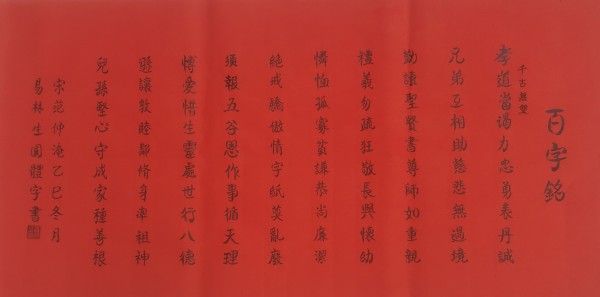 百字銘
千古無雙
孝道當竭力忠勇表丹誠
兄弟互相助慈悲無過境
勤讀聖賢書尊師如重親
禮義勿疏狂敬長與懷幼
憐恤孤寡貧謙恭尚廉潔
絕戒驕傲情字紙莫亂廢
須報五谷恩作事循天理
博愛惜生靈處世行八德
遜讓敦睦鄰脩身率祖神
兒孫堅心守成家種善根
宋范仲淹乙巳冬月
易林生圓體字書